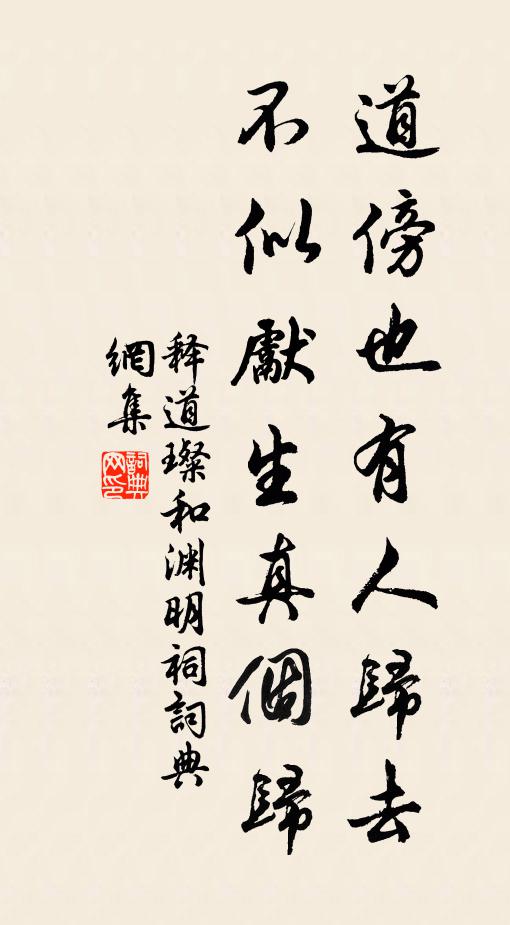 道傍也有人歸去
不似獻生真個歸
释道璨和渊明祠詞典
網集
詞典网印